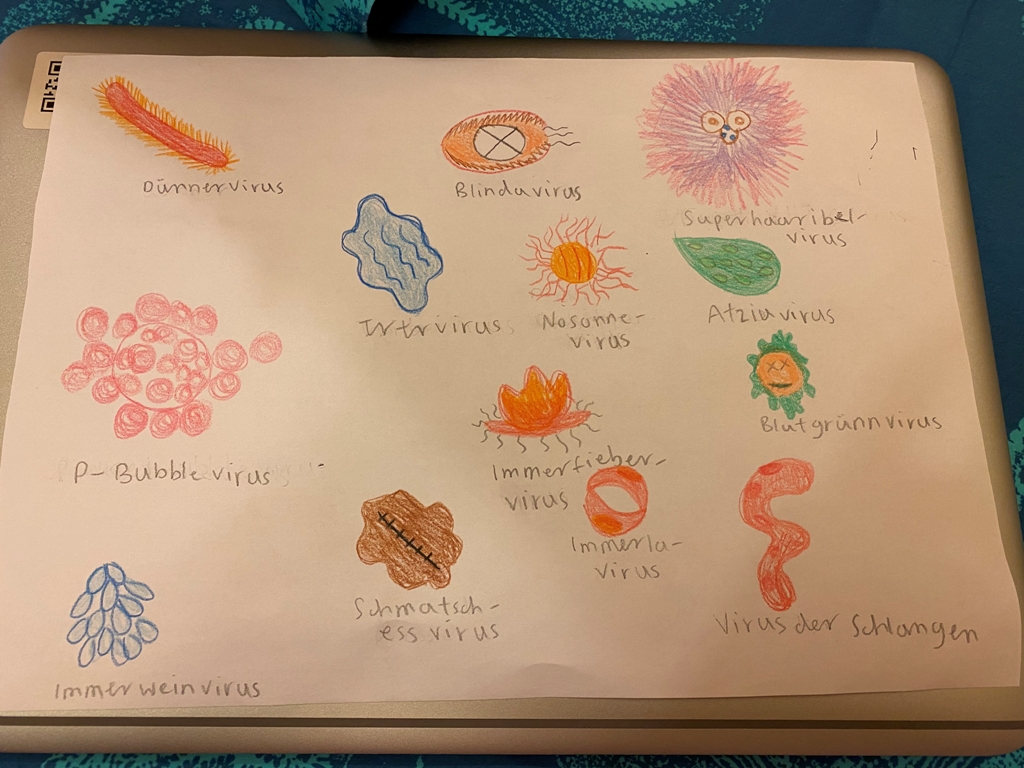 Dünnervirus
Blindavirus
Superhaaribel-
virus
Irtrvirus
Nosonne-
virus
Atziuvirus
Blutgrünnvirus
P-Bubblevirus
Immerfieber-
virus
Immerla-
virus
Schmatsch-
essvirus
Virus der Schlangen
Immerweinvirus